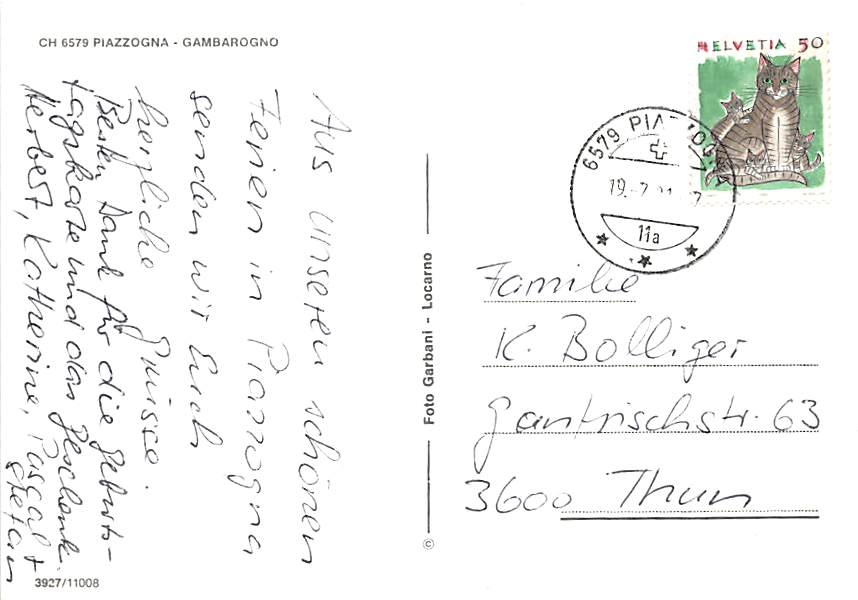 CH 6579 PIAZZOGNA - GAMBAROGNO
Aus unseren schönen
Ferien in Piazzogna
senden wir Euch
herzliche Grüsse.
Besten Dank für die Geburts-
tagskarte und das Geschenk.
Herbert, Katherine, Pascal +
Stefan
3927/11008
© Foto Garbani - Locarno
HELVETIA 50
6579 PIAZZOGNA
19.-7.
11a
Familie
K. Bolliger
Gantrischstr. 63
3600 Thun